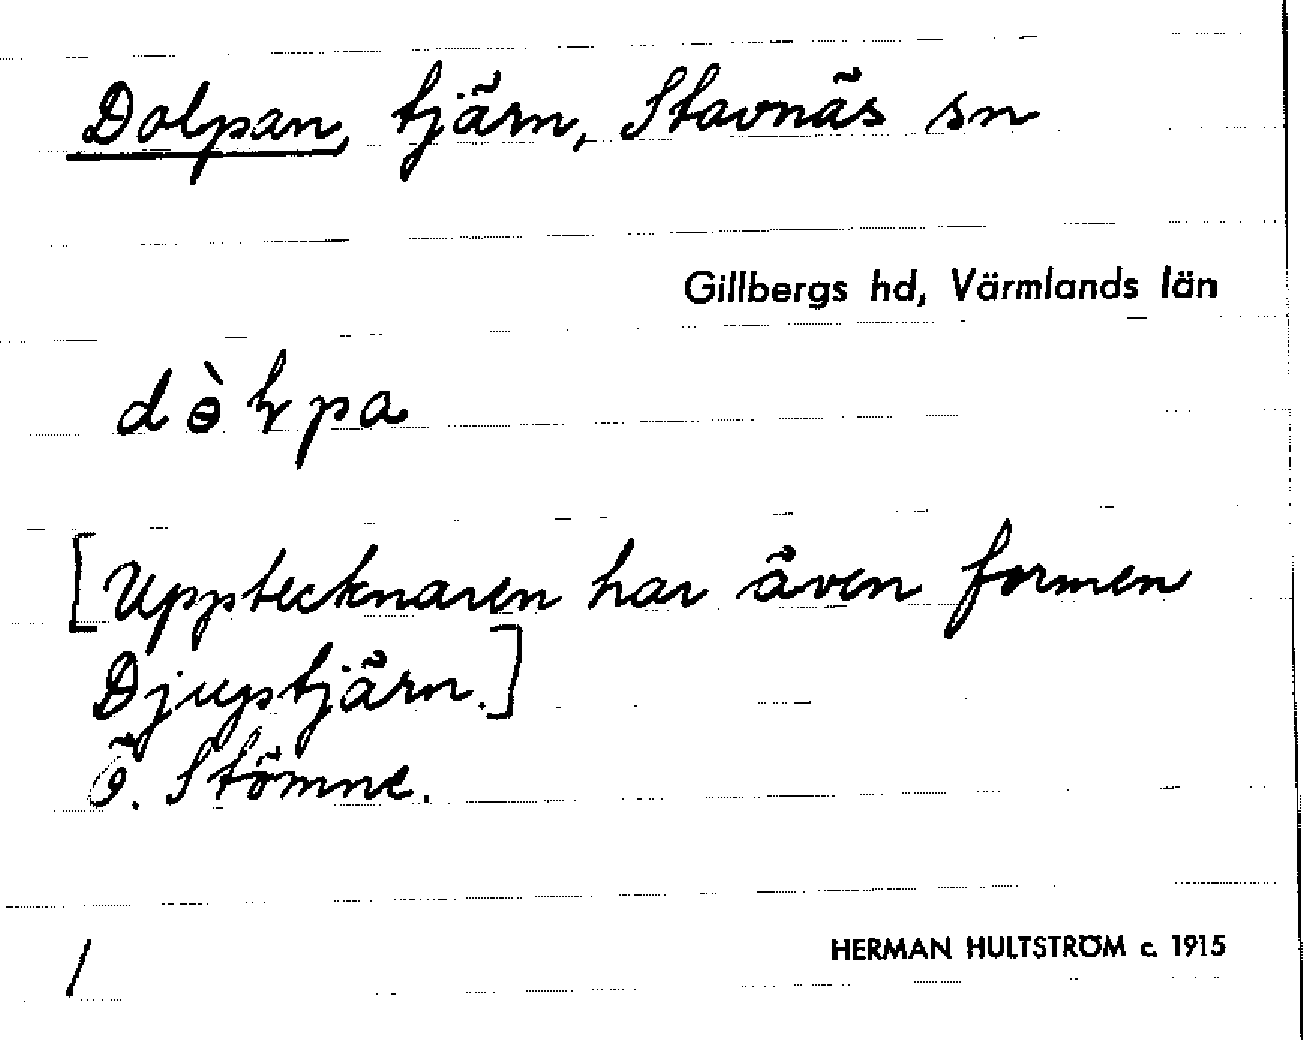 Dolpan, tjärn, Stavnäs sn
Gillbergs hd, Värmlands län
[Upptecknaren har även formen
Djuptjärn.]
Ö. Stömne.
/
HERMAN HULTSTRÖM c. 1915